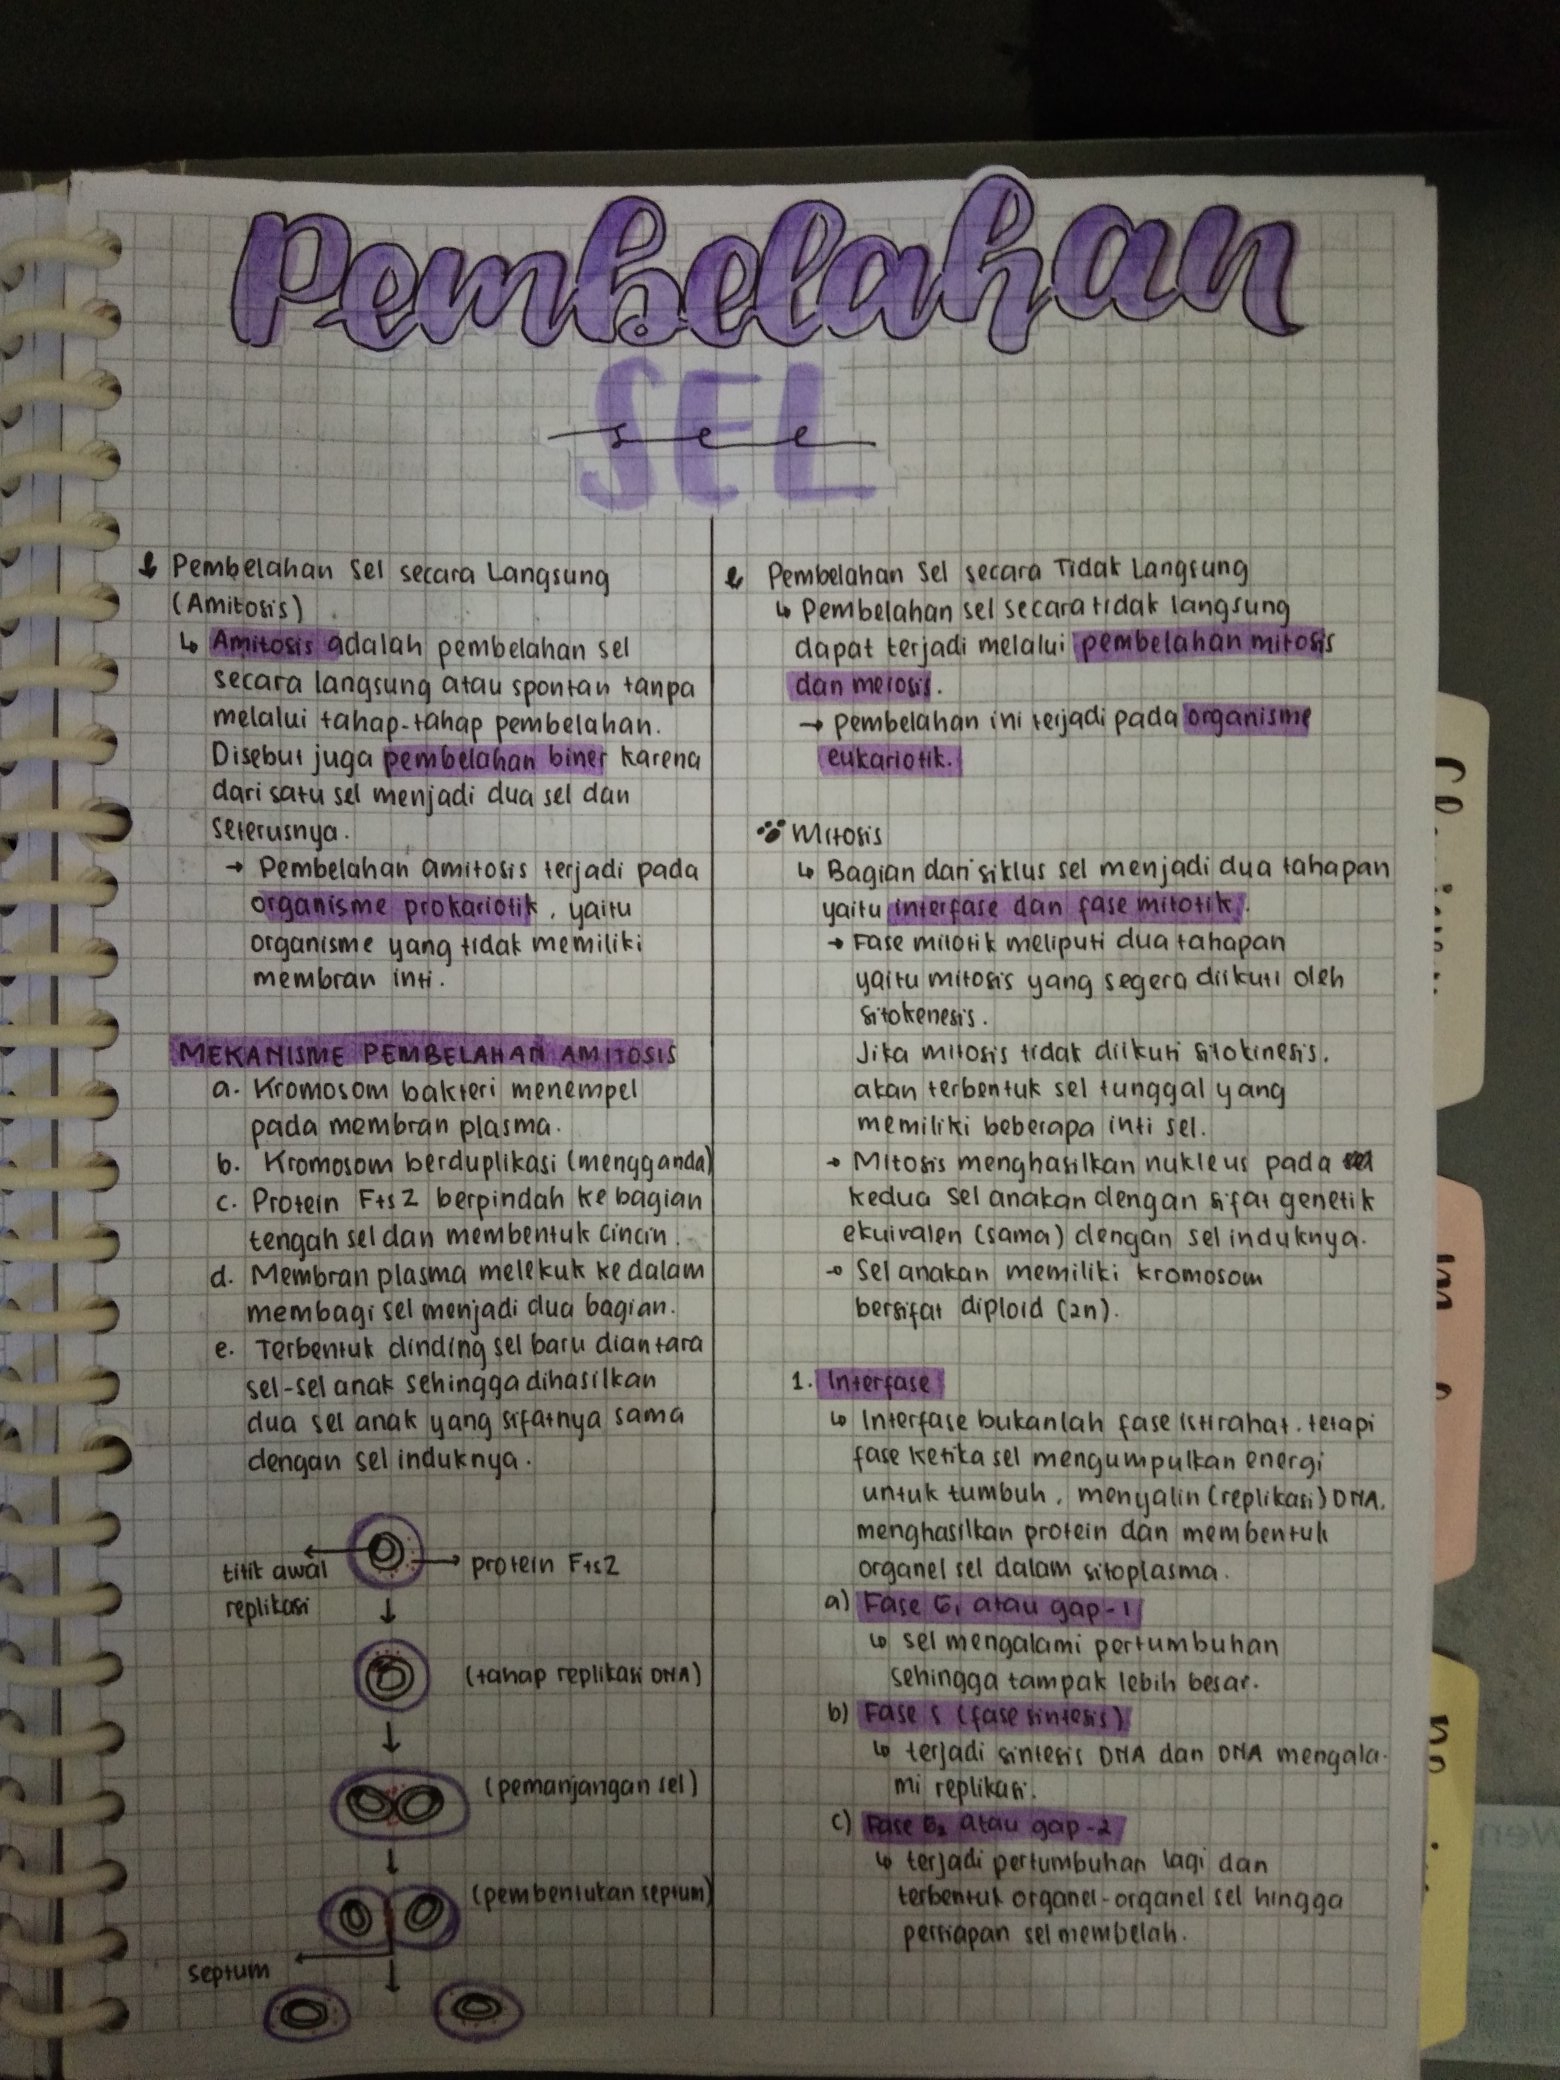 Pembelahan
SEL
sel
Pembelahan Sel secara Langsung
(Amitosis)
↳ Amitosis adalah pembelahan sel
secara langsung atau spontan tanpa
melalui tahap-tahap pembelahan.
Disebut juga pembelahan biner karena
dari satu sel menjadi dua sel dan
seterusnya.
→ Pembelahan amitosis terjadi pada
organisme prokariotik, yaitu
organisme yang tidak memiliki
membran inti.
MEKANISME PEMBELAHAN AMITOSIS
a. Kromosom bakteri menempel
pada membran plasma.
b. Kromosom berduplikasi (mengganda)
c. Protein FtsZ berpindah ke bagian
tengah sel dan membentuk cincin.
d. Membran plasma melekuk ke dalam
membagi sel menjadi dua bagian.
e. Terbentuk dinding sel baru diantara
sel-sel anak sehingga dihasilkan
dua sel anak yang sifatnya sama
dengan sel induknya.
titik awal
replikasi
protein FtsZ
(tahap replikasi DNA)
(pemanjangan sel)
(pembentukan septum)
septum
Pembelahan Sel secara Tidak Langsung
↳ Pembelahan sel secara tidak langsung
dapat terjadi melalui pembelahan mitosis
dan meiosis.
→ pembelahan ini terjadi pada organisme
eukariotik.
Mitosis
↳ Bagian dari siklus sel menjadi dua tahapan
yaitu interfase dan fase mitotik.
→ Fase mitotik meliputi dua tahapan
yaitu mitosis yang segera diikuti oleh
sitokenesis.
Jika mitosis tidak diikuti sitokinesis,
akan terbentuk sel tunggal yang
memiliki beberapa inti sel.
→ Mitosis menghasilkan nukleus pada
kedua sel anakan dengan sifat genetik
ekuivalen (sama) dengan sel induknya.
→ Sel anakan memiliki kromosom
bersifat diploid (2n).
1. Interfase
↳ Interfase bukanlah fase istirahat, tetapi
fase ketika sel mengumpulkan energi
untuk tumbuh, menyalin (replikasi) DNA,
menghasilkan protein dan membentuk
organel sel dalam sitoplasma.
a) Fase G₁ atau gap-1
↳ sel mengalami pertumbuhan
sehingga tampak lebih besar.
b) Fase S (fase sintesis)
↳ terjadi sintesis DNA dan DNA mengala-
mi replikasi.
c) Fase G₂ atau gap-2
↳ terjadi pertumbuhan lagi dan
terbentuk organel-organel sel hingga
persiapan sel membelah.